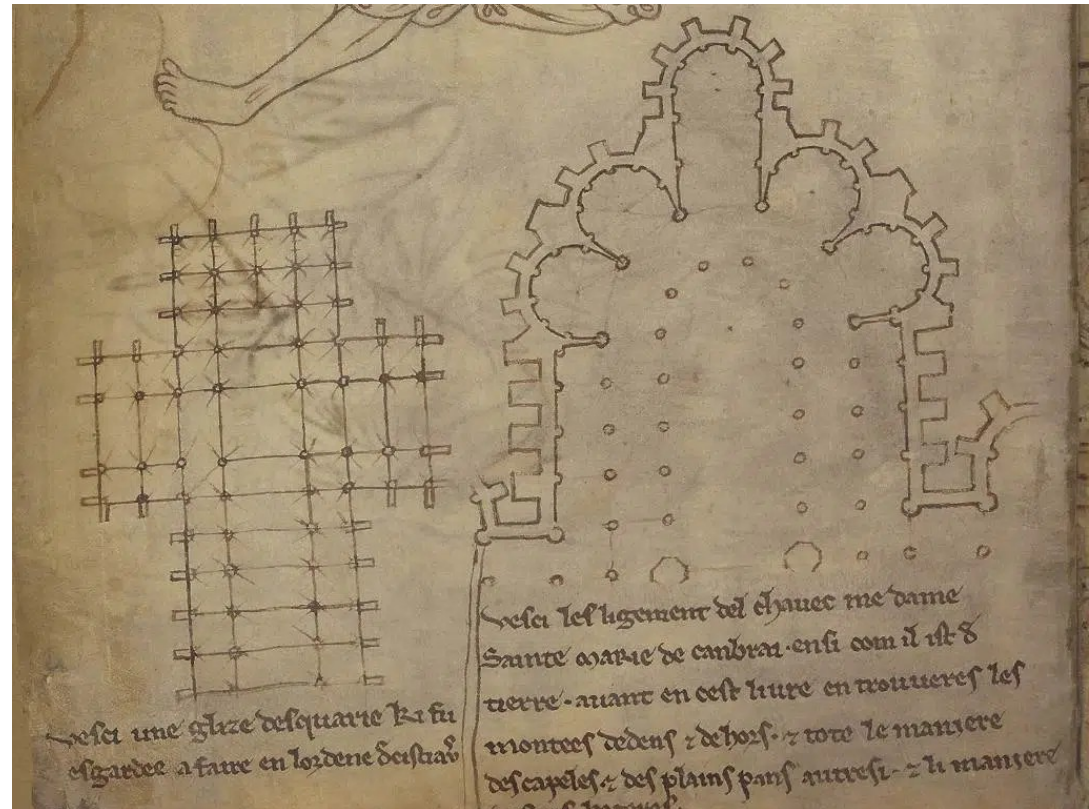 vesci une glize desquarie ki fu
esgardee a faire en lordene
vesci les ligement del chavec me dame
Sainte marie de canbrai · ensi com il ist
tierre · avant en cest livre en trouveres les
montees dedens ⁊ dehors · ⁊ tote le maniere
des capeles · ⁊ des plains pans autresi · ⁊ li maniere